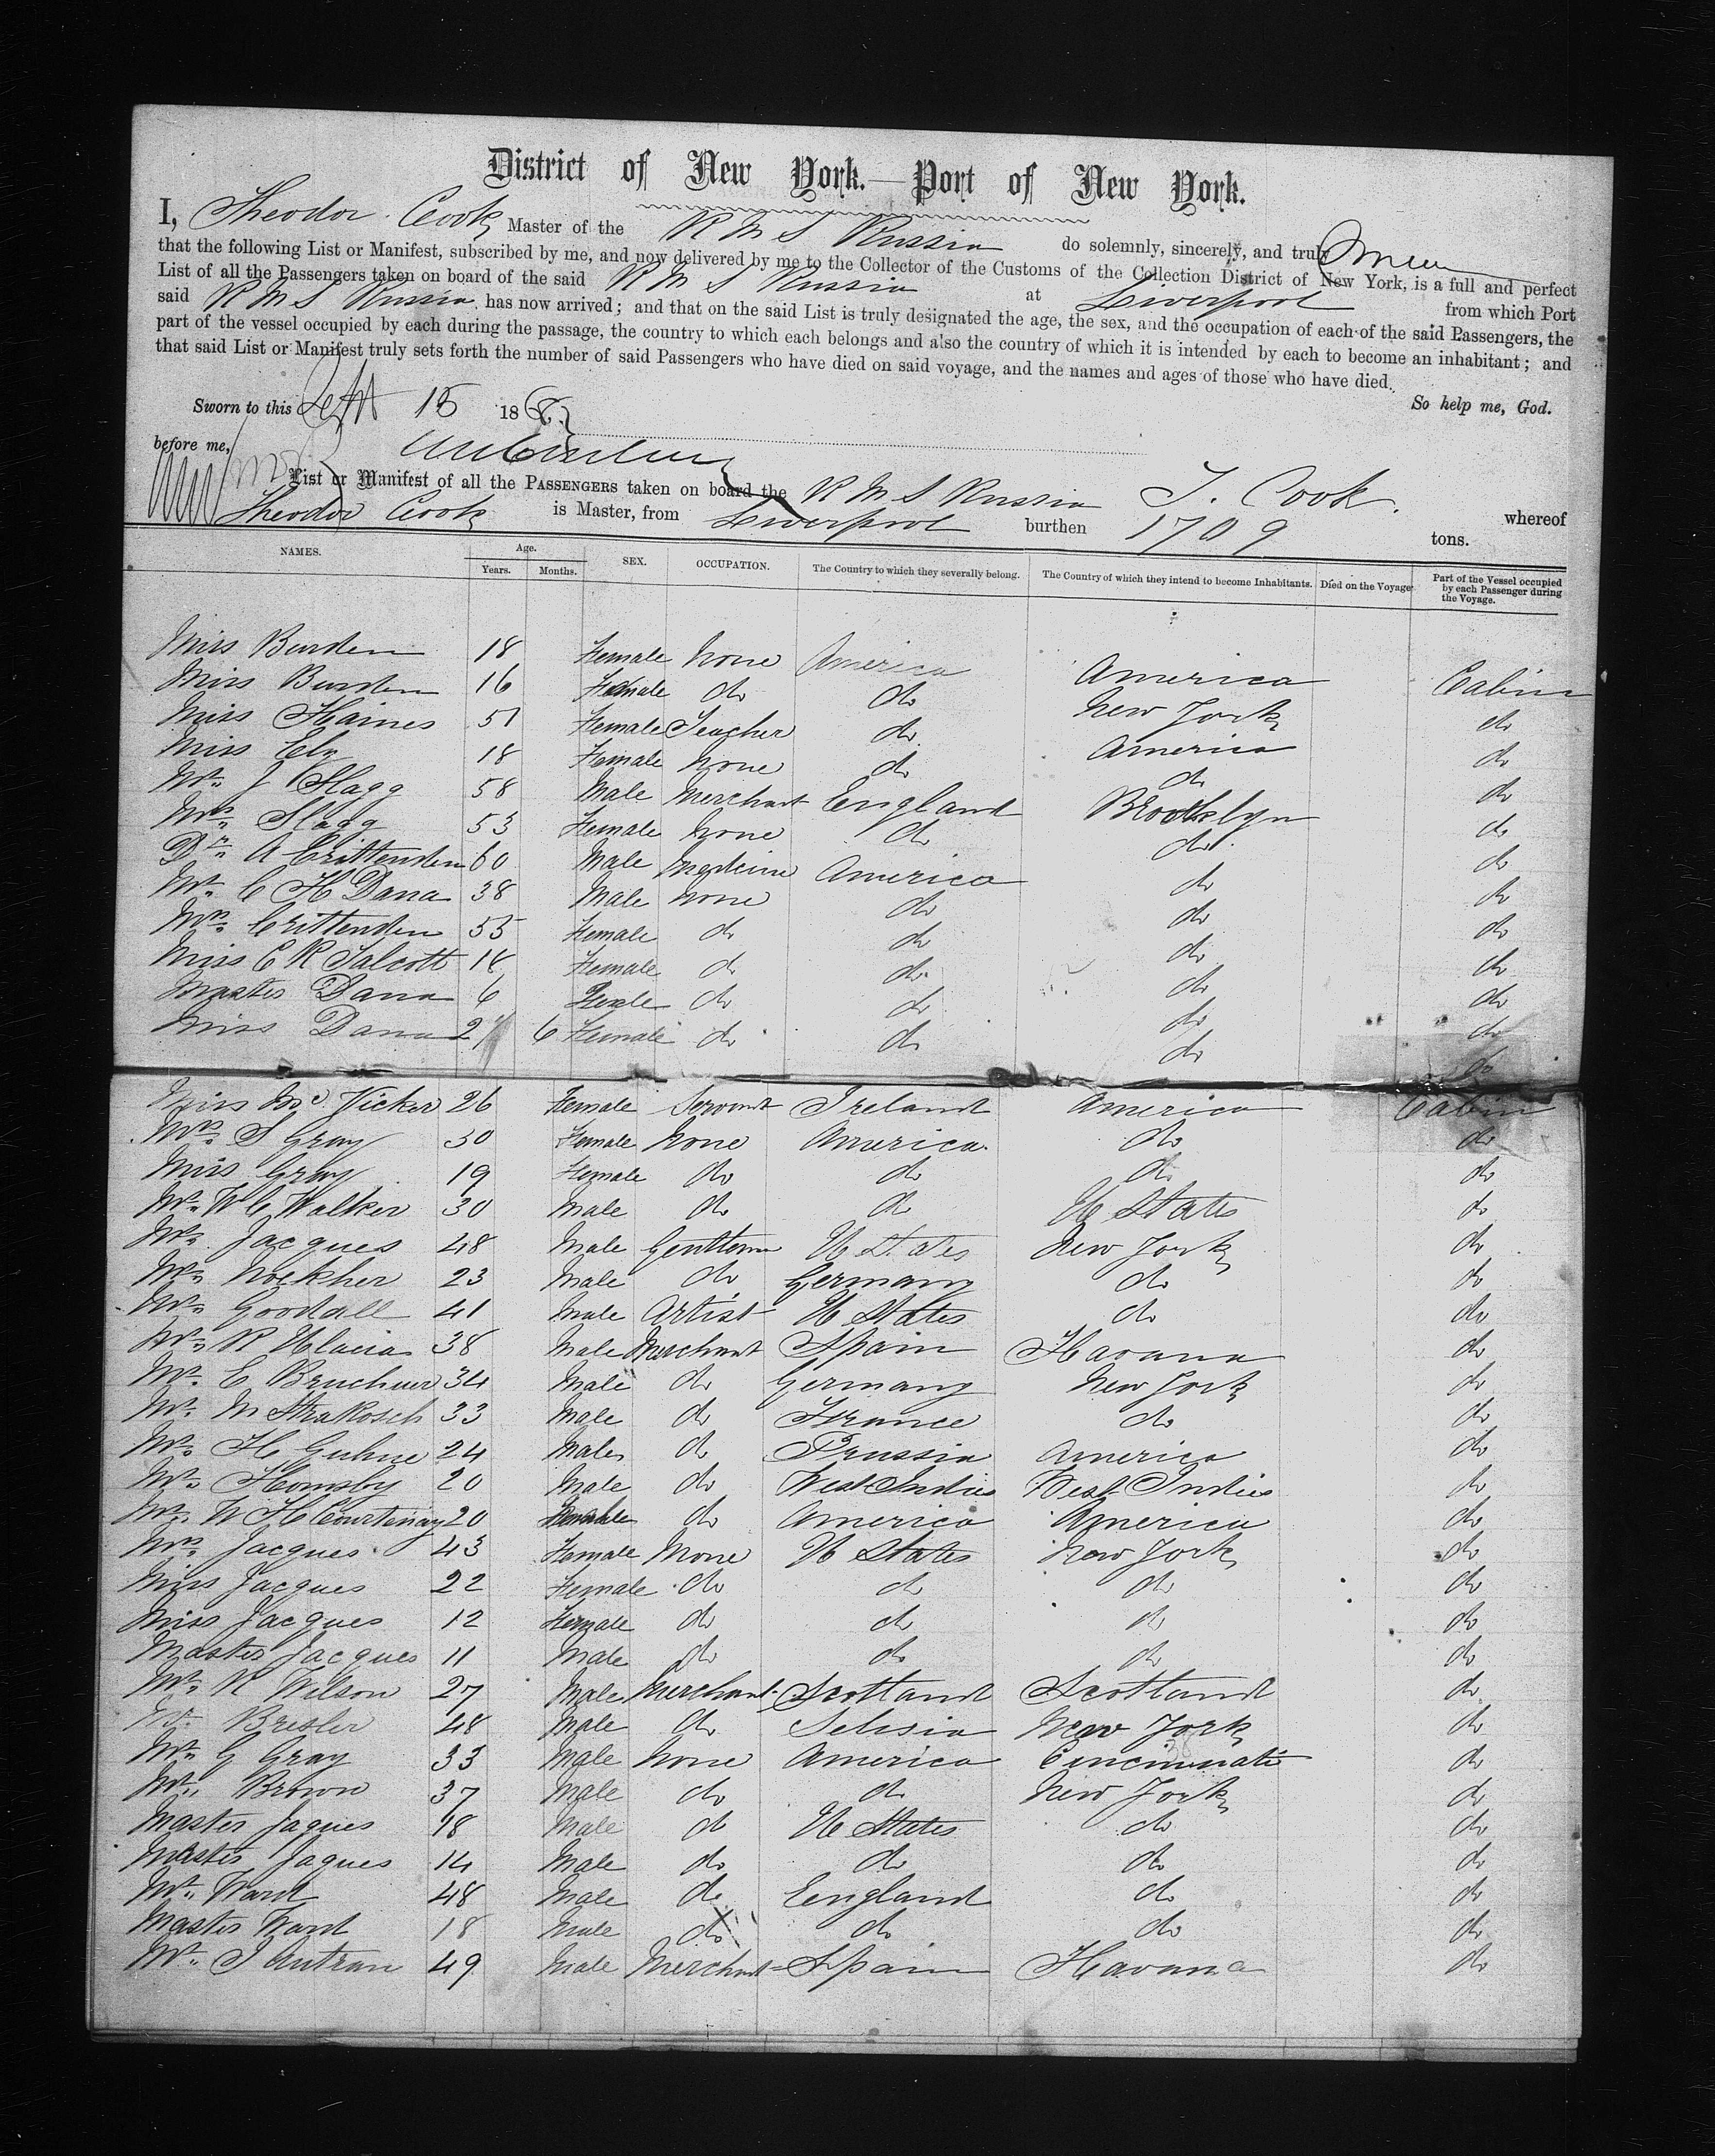 District of New York.—Port of New York.
I, Theodor Cook Master of the R M S Russia do solemnly, sincerely, and truly
that the following List or Manifest, subscribed by me, and now delivered by me to the Collector of the Customs of the Collection District of New York, is a full and perfect
List of all the Passengers taken on board of the said R M S Russia at Liverpool from which Port
said R M S Russia has now arrived; and that on the said List is truly designated the age, the sex, and the occupation of each of the said Passengers, the
part of the vessel occupied by each during the passage, the country to which each belongs and also the country of which it is intended by each to become an inhabitant; and
that said List or Manifest truly sets forth the number of said Passengers who have died on said voyage, and the names and ages of those who have died.
So help me, God.
Sworn to this Sept 15 186
before me,
T. Cook.
List or Manifest of all the PASSENGERS taken on board the R M S Russia whereof
Theodor Cook is Master, from Liverpool burthen 1709 tons.
NAMES. Age. Years. Months. SEX. OCCUPATION. The Country to which they severally belong. The Country of which they intend to become Inhabitants. Died on the Voyage Part of the Vessel occupied by each Passenger during the Voyage.
Miss Burden 18 Female None America America Cabin
Miss Burden 16 Female do do New York do
Miss Haines 51 Female Teacher do America do
Miss Ely 18 Female None do do do
Mr. J Slagg 58 Male Merchant England Brooklyn do
Mrs. Slagg 53 Female None do do do
Dr. A Crittenden 60 Male Medicine America do do
Mr. C H Dana 38 Male None do do do
Mrs. Crittenden 55 Female do do do do
Miss C R Talcott 18 Female do do do do
Master Dana 6 do do do do
Miss Dana 2 6 Female do do do do
Miss Mc Vicker 26 Female Servant Ireland America Cabin
Mrs. S Gray 30 Female None America do do
Miss Gray 19 Female do do do do
Mr. W C Walker 30 Male do do U States do
Mr. Jacques 48 Male Gentleman U States New York do
Mr. 23 Male do Germany do do
Mr. Goodall 41 Male Artist U States do do
Mr. R Ulacia 38 Male Merchant Spain Havana do
Mr. E 34 Male do Germany New York do
Mr. M Strakosch 33 Male do France do do
Mr. H Guhne 24 Male do Prussia America do
Mr. Hornsby 20 Male do West Indies West Indies do
Mr. W H Courtenay 20 do America America do
Mrs. Jacques 43 Female None U States New York do
Miss Jacques 22 Female do do do do
Miss Jacques 12 Female do do do do
Master Jacques 11 Male do do do do
Mr. R Wilson 27 Male Merchant Scotland Scotland do
Mr. Bresler 48 Male do Selisia New York do
Mr. G Gray 33 Male None America Cincinnati do
Mr. Brown 37 Male do do New York do
Master Jaques 18 Male do U States do do
Master Jaques 14 Male do do do do
Mr. Ward 48 Male do England do do
Master Ward 18 Male do do do do
Mr. J Autran 49 Male Merchant Spain Havana do